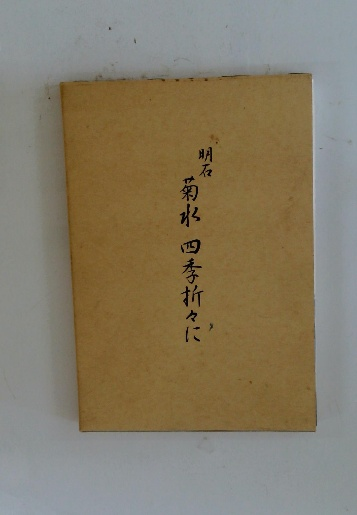 明石
菊水 四季折々に